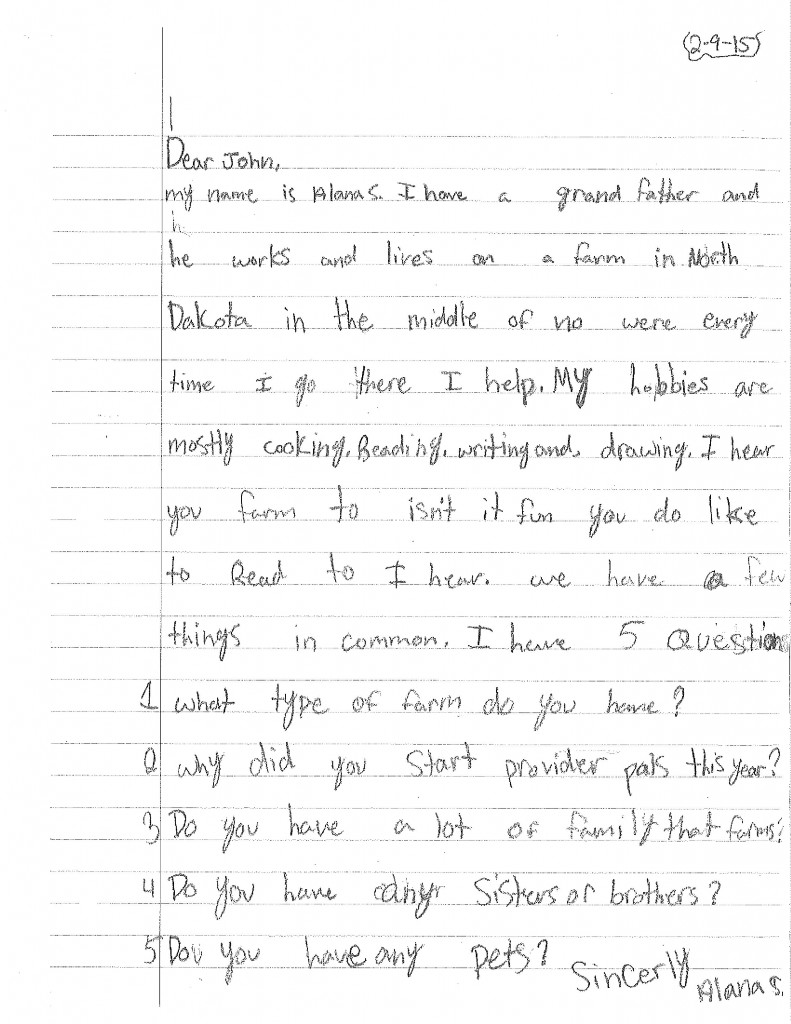 (2-9-15)
Dear John,
my name is Alana S. I have a grand father and
he works and lives on a farm in North
Dakota in the middle of no were every
time I go there I help. My hobbies are
mostly cooking, Reading, writing and, drawing. I hear
you farm to isn't it fun you do like
to Read to I hear. we have a few
things in common. I have 5 Questions
1 what type of farm do you have?
2 why did you Start provider pals this year?
3 Do you have a lot of family that farms?
4 Do you have any Sisters or brothers?
5 Do you have any pets?
Sincerly
Alana S.